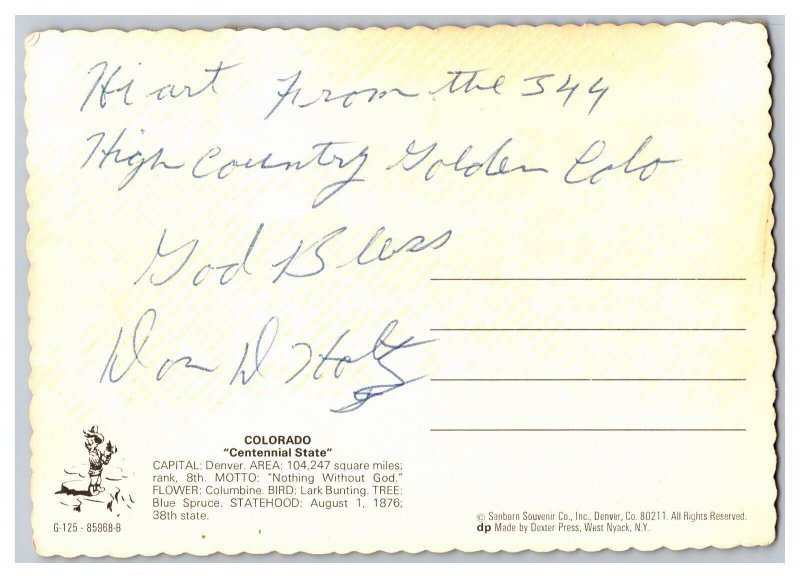 Hi art from the 344
High Country Golden Colo
God Bless
Don D Holtz
COLORADO
"Centennial State"
CAPITAL: Denver. AREA: 104,247 square miles;
rank, 8th. MOTTO: "Nothing Without God."
FLOWER: Columbine. BIRD: Lark Bunting. TREE:
Blue Spruce. STATEHOOD: August 1, 1876;
38th state.
G-125 - 85968-B
© Sanborn Souvenir Co., Inc., Denver, Co. 80211. All Rights Reserved.
dp Made by Dexter Press, West Nyack, N.Y.